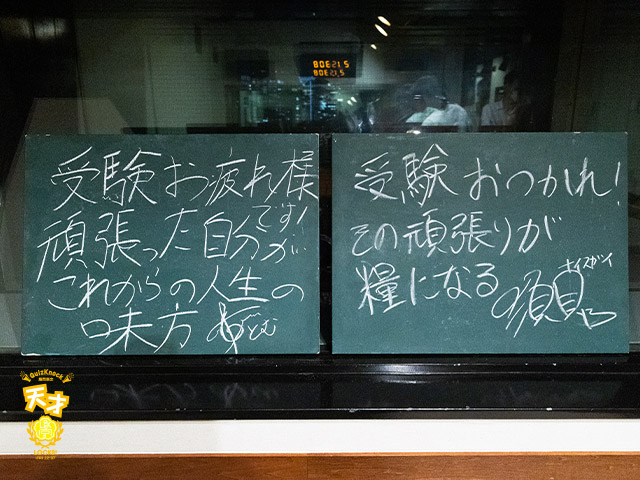 受験お疲れ様
です!
頑張った自分が
これからの人生の
味方
受験おつかれ!
その頑張りが
糧になる
ナイスガイ
須貝
QuizKnock
天才
LOCKS!